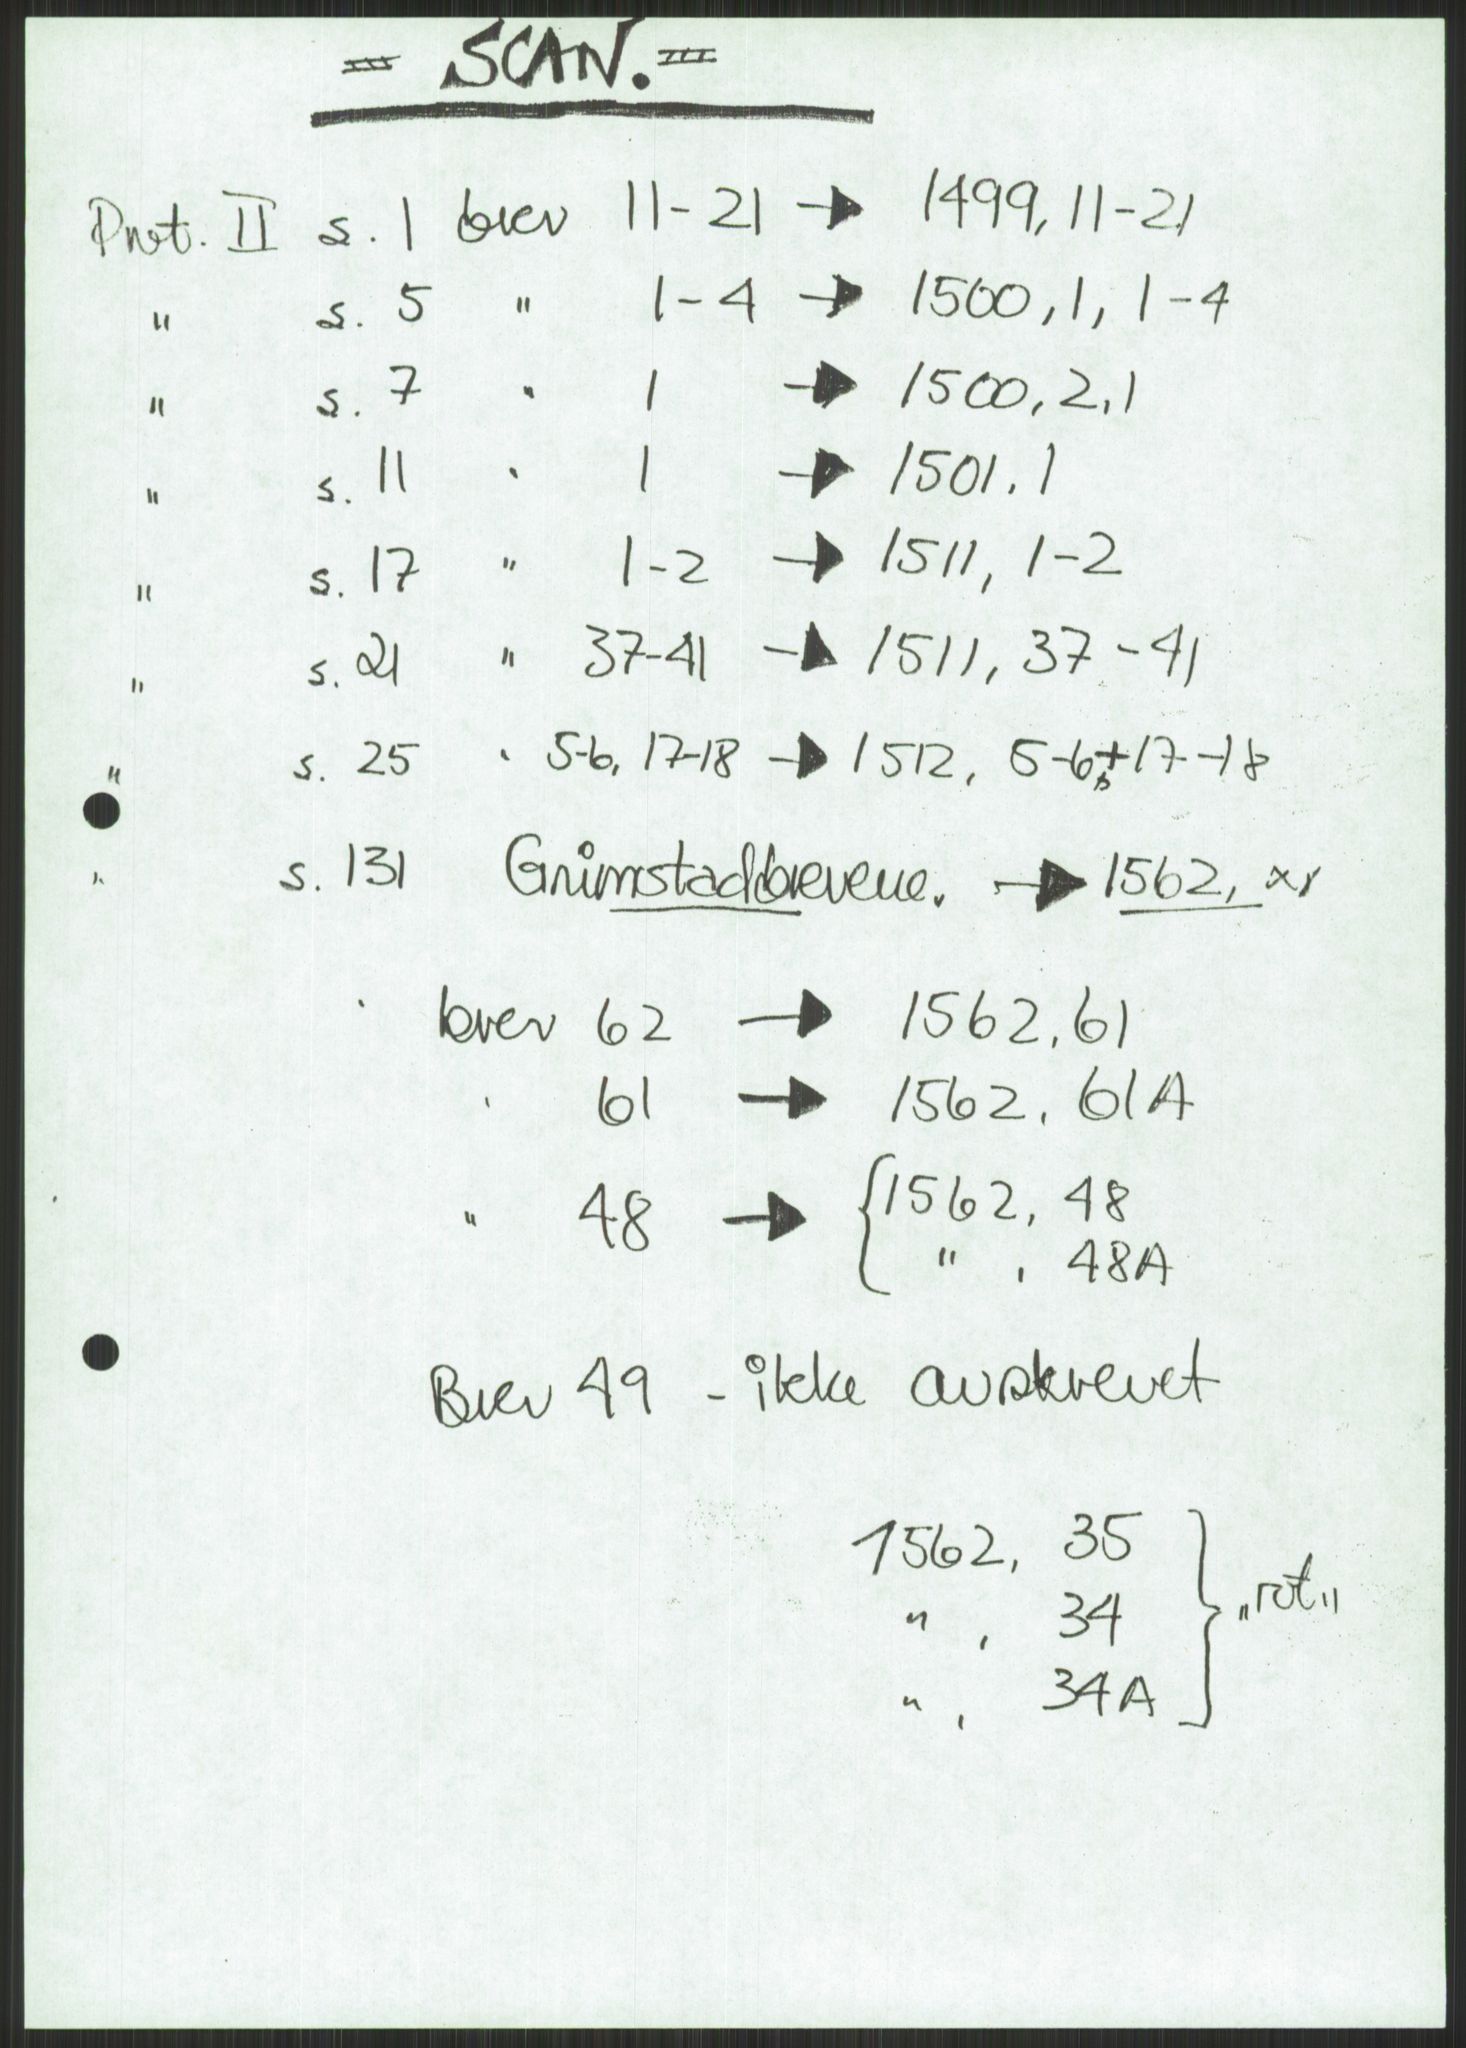 = SCAN. =
Prot. II s. 1 brev 11-21 → 1499, 11-21
" s. 5 " 1-4 → 1500, 1, 1-4
" s. 7 " 1 → 1500, 2, 1
" s. 11 " 1 → 1501, 1
" s. 17 " 1-2 → 1511, 1-2
" s. 21 " 37-41 → 1511, 37-41
" s. 25 " 5-6, 17-18 → 1512, 5-6+17-18
" s. 131 Grimstadbrevene. → 1562,
brev 62 → 1562, 61
" 61 → 1562, 61A
" 48 → { 1562, 48
" , 48A
Brev 49 - ikke avskrevet
1562, 35
" , 34 } "rot"
" , 34A